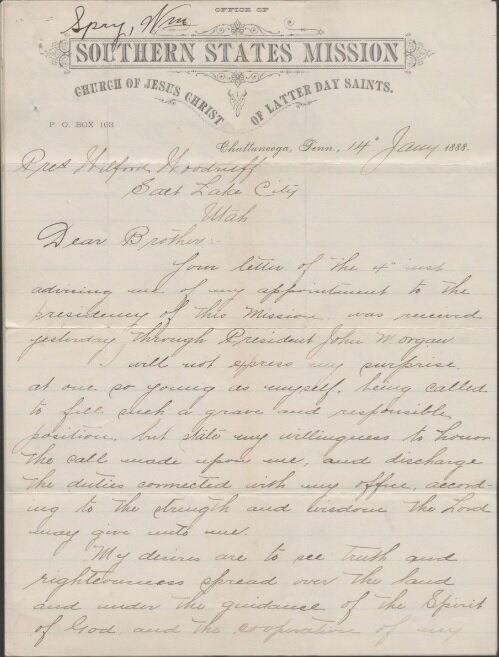 OFFICE OF
Spry, Wm
SOUTHERN STATES MISSION
CHURCH OF JESUS CHRIST
OF LATTER DAY SAINTS.
P. O. BOX 103
Chattanooga, Tenn., 14" Jany 1888.
Pres Wilford Woodruff
Salt Lake City
Utah
Dear Brother:-
Your letter of the 4" inst
advising me of my appointment to the
presidency of this Mission was received
yesterday through President John Morgan
I will not express my surprise
at one so young as myself, being called
to fill such a grave and responsible
position, but state my willingness to honor
the call made upon me, and discharge
the duties connected with my office, accord-
ing to the strength and wisdom the Lord
may give unto me.
My desires are to see truth and
righteousness spread over the land
and under the guidance of the Spirit
of God and the cooperation of my